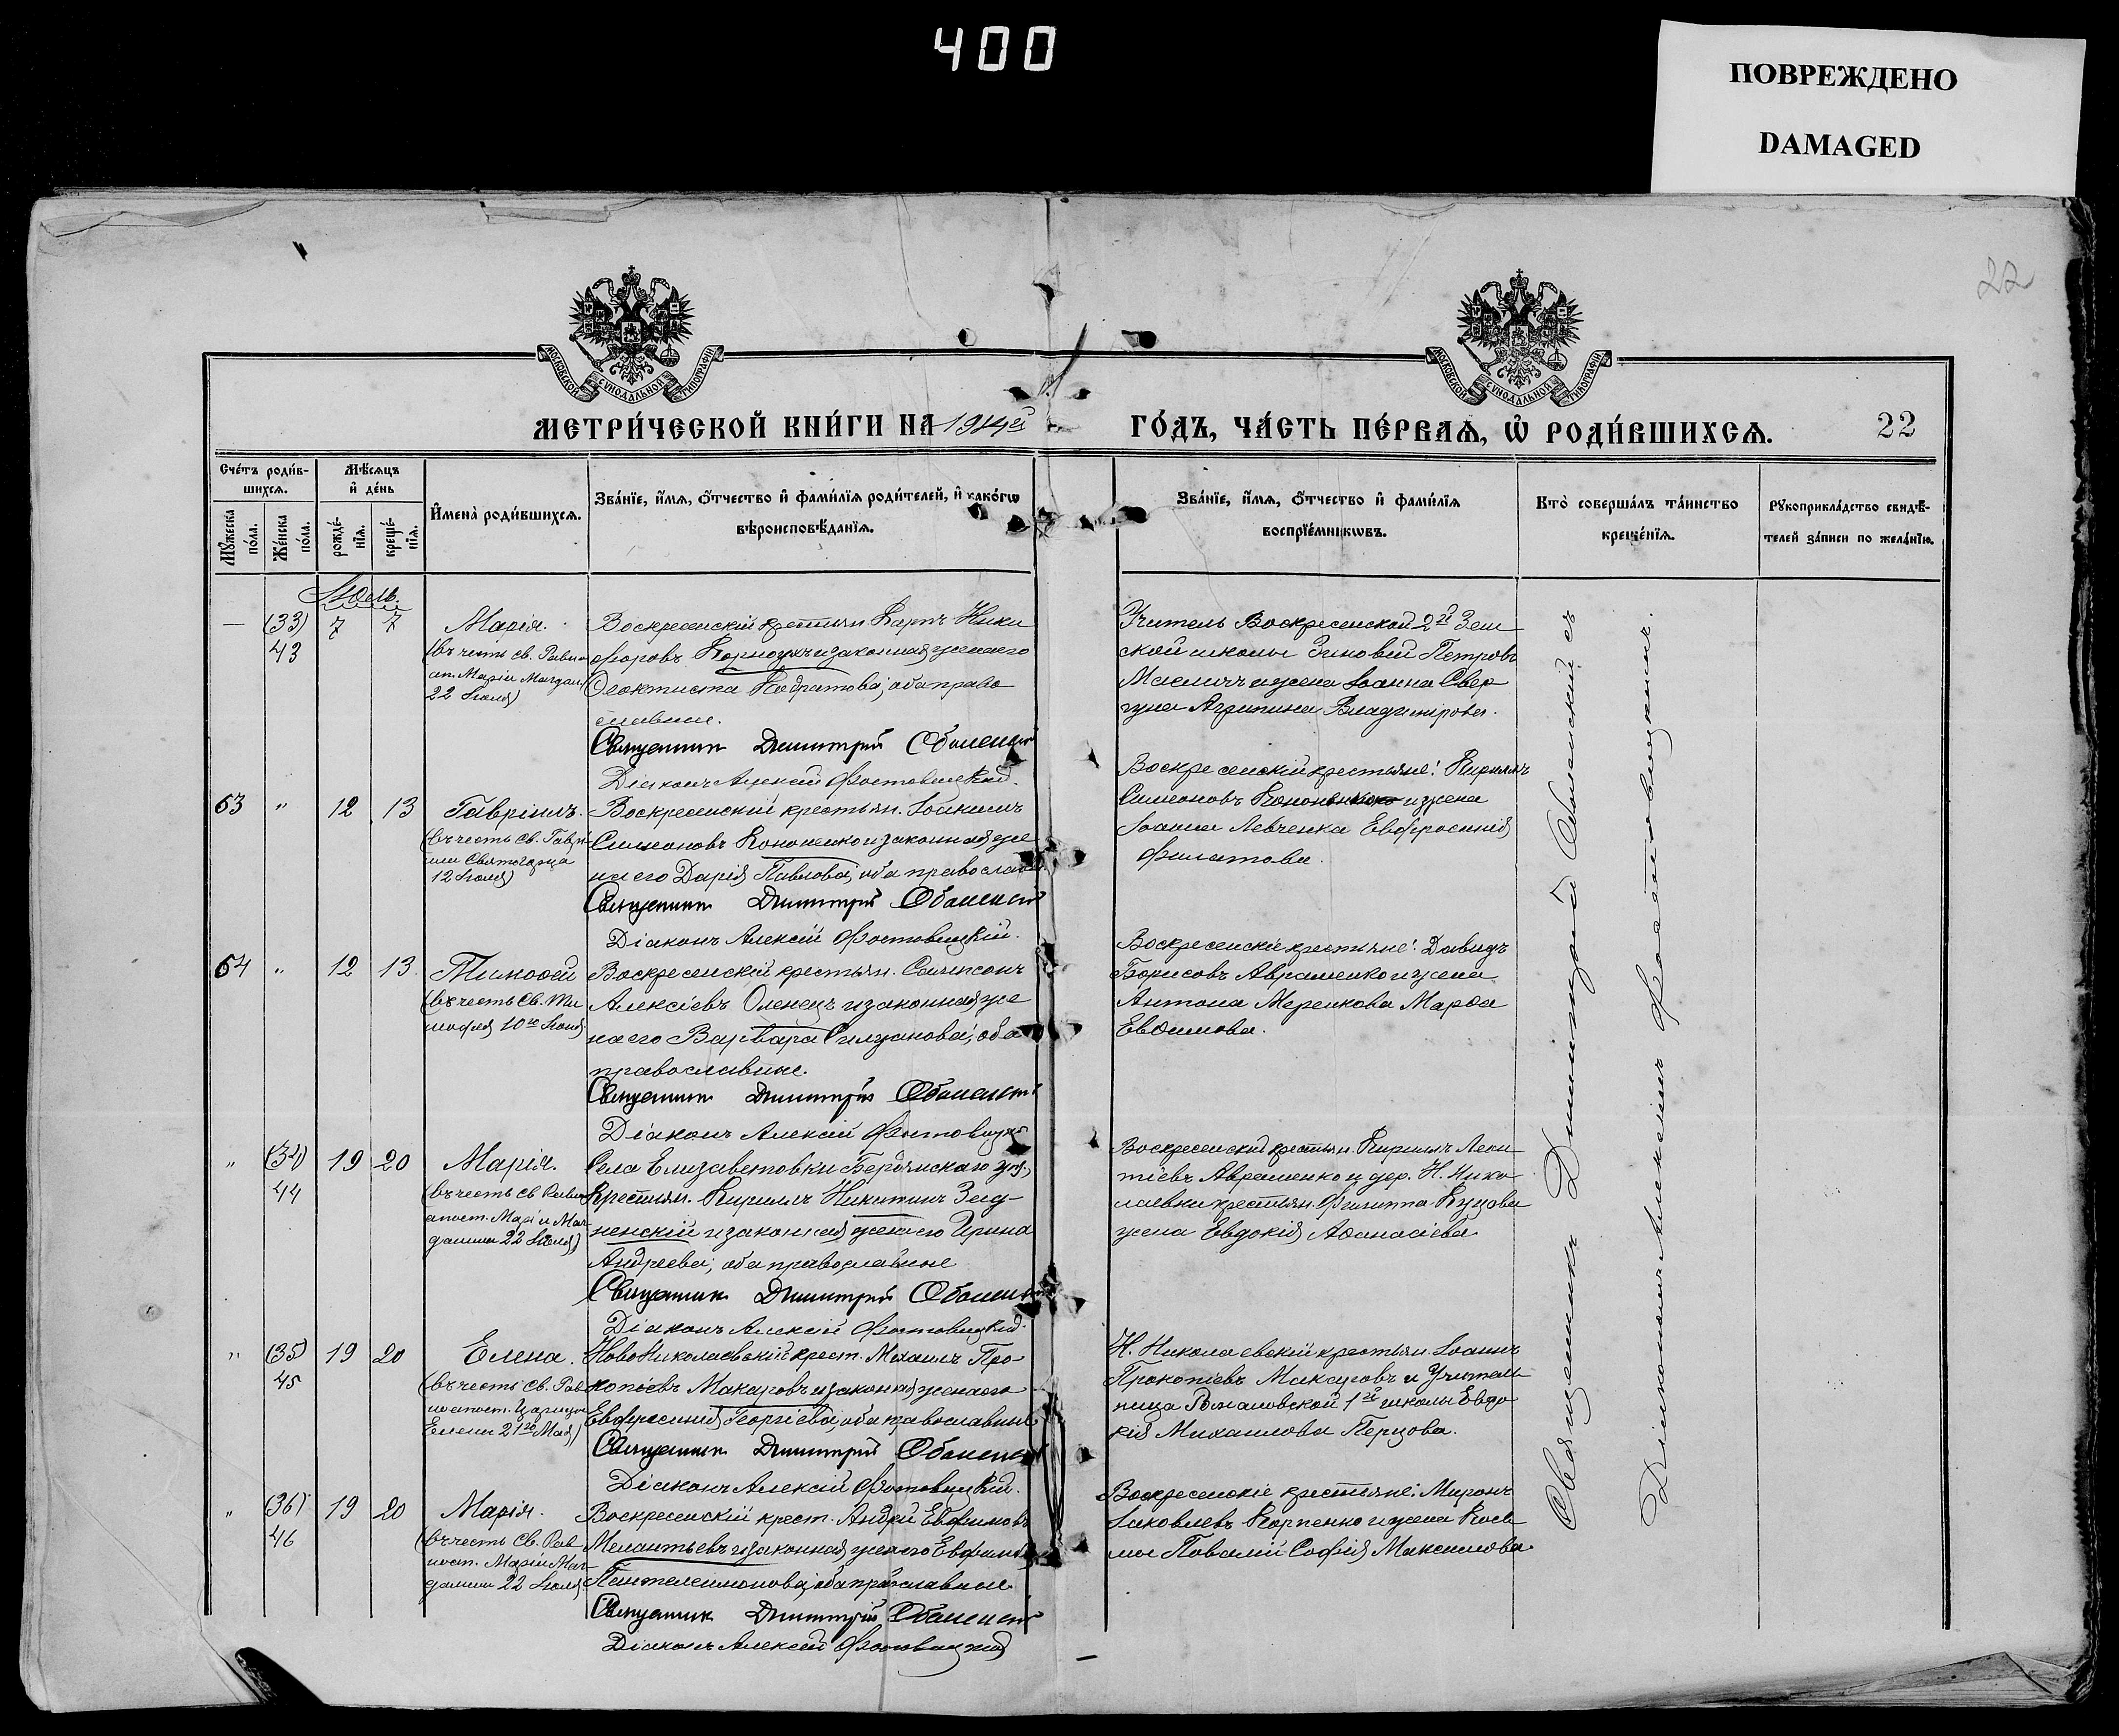 400
ПОВРЕЖДЕНО
DAMAGED
22
МОСКОВСКОЙ СУНОДАЛЬНОЙ ТИПОГРАФІИ
МОСКОВСКОЙ СУНОДАЛЬНОЙ ТИПОГРАФІИ
МЕТРИ́ЧЕСКОЙ КНИ́ГИ НА 1914й
ГО́ДЪ, ЧА́СТЬ ПЕ́РВАѦ, Ѡ҆ РОДИ́ВШИХСѦ.
22
Счéтъ роди́в-
шихсѧ.
Мѣ́сѧцъ
и҆ де́нь
Мꙋ́жеска по́ла.
Же́нска по́ла.
рожде́-нїѧ.
креще́-нїѧ.
И҆мена̀ роди́вшихсѧ.
Зва́нїе, и҆́мѧ, ѻ҆́тчество и҆ фами́лїѧ роди́телей, и҆ како́гѡ
вѣроисповѣ́данїѧ.
Зва́нїе, и҆́мѧ, ѻ҆́тчество и҆ фами́лїѧ
воспрїе́мникѡвъ.
Кто̀ соверша́лъ та́инство
креще́нїѧ.
Рꙋкоприкла́дство свидѣ́-
телей за́писи по жела́нїю.
Іюль.
— (33) 7 7 Марія.
43
(въ честь св. Равно
ап. Маріи Магдал.
22 Іюля)
Воскресенскій крестьян. Карпъ Ники
форовъ и законная жена его
Ѳеоктиста Кодратова; оба право
славные.
Священникъ Димитрій Оболенскій
Діаконъ Алексій Фостовицкій.
Учитель Воскресенской 2й Зем
ской школы Зиновій Петровъ
и жена Іоанна
Агрипина Владимірова.
53 " 12 13 Гавріилъ.
(въ честь св. Гаврі
ила Святогорца
12 Іюля)
Воскресенскій крестьян. Іоакимъ
Симеоновъ Кононенко и законная же
на его Дарія Павлова; оба православн.
Священникъ Димитрій Оболенскій
Діаконъ Алексій Фостовицкій.
Воскресенскій крестьяне: Кириллъ
Симеоновъ Кононенко и жена
Іоанна Левченка Евфросинія
Филатова.
54 " 12 13 Тимоѳей
(въ честь св. Ти
моѳея 10го Іюня)
Воскресенскій крестьян. Сампсонъ
Алексіевъ Оленецъ и законная же
на его Варвара Силуанова; оба
православные.
Священникъ Димитрій Оболенскій
Діаконъ Алексій Фостовицкій
Воскресенскіе крестьяне: Давидъ
Борисовъ Авраменко и жена
Антона Меренкова Марѳа
Евѳимова.
" (34) 19 20 Марія.
44
(въ честь св Равно
апост. Маріи Маг
далины 22 Іюля)
Села Елизаветовки Бердянскаго уѣз.,
крестьян. Кириллъ Никитинъ
и законная жена его Ирина
Андреева; оба православные
Священникъ Димитрій Оболенскій
Діаконъ Алексій Фостовицкій.
Воскресенскій крестьян. Кириллъ Леон
тіевъ Авраменко и дер. Н. Нико
лаевки крестьян. Филиппа Куцова
жена Евдокія Аѳанасіева
" (35) 19 20 Елена.
45
(въ честь св. Рав
ноапост. Царицы
Елены 21го Мая)
Ново Николаевскій крест. Михаилъ Про-
копіевъ Макаровъ и законная жена его
Евфросинія Георгіева; оба православные
Священникъ Димитрій Оболенскій
Діаконъ Алексій Фостовицкій.
Н. Николаевскій крестьян. Іоаннъ
Прокопіевъ Макаровъ и Учитель
ница 1й школы Евдо
кія Михаилова Перцова.
" (36) 19 20 Марія.
46
(въ честь св. Рав
ноап. Маріи Маг
далины 22 Іюля)
Воскресенскій крест. Андрей Евѳимовъ
Мелантьевъ и законная жена его Евфимія
Пантелеимонова; оба православные
Священникъ Димитрій Оболенскій
Діаконъ Алексій Фостовицкій
Воскресенскіе крестьяне: Миронъ
Іаковлевъ Карпенко и жена Кось
мы Повалій Софія Максимова.
Священникъ Димитрій Оболенскій съ
Діакономъ Алексіемъ Фостовицкимъ.